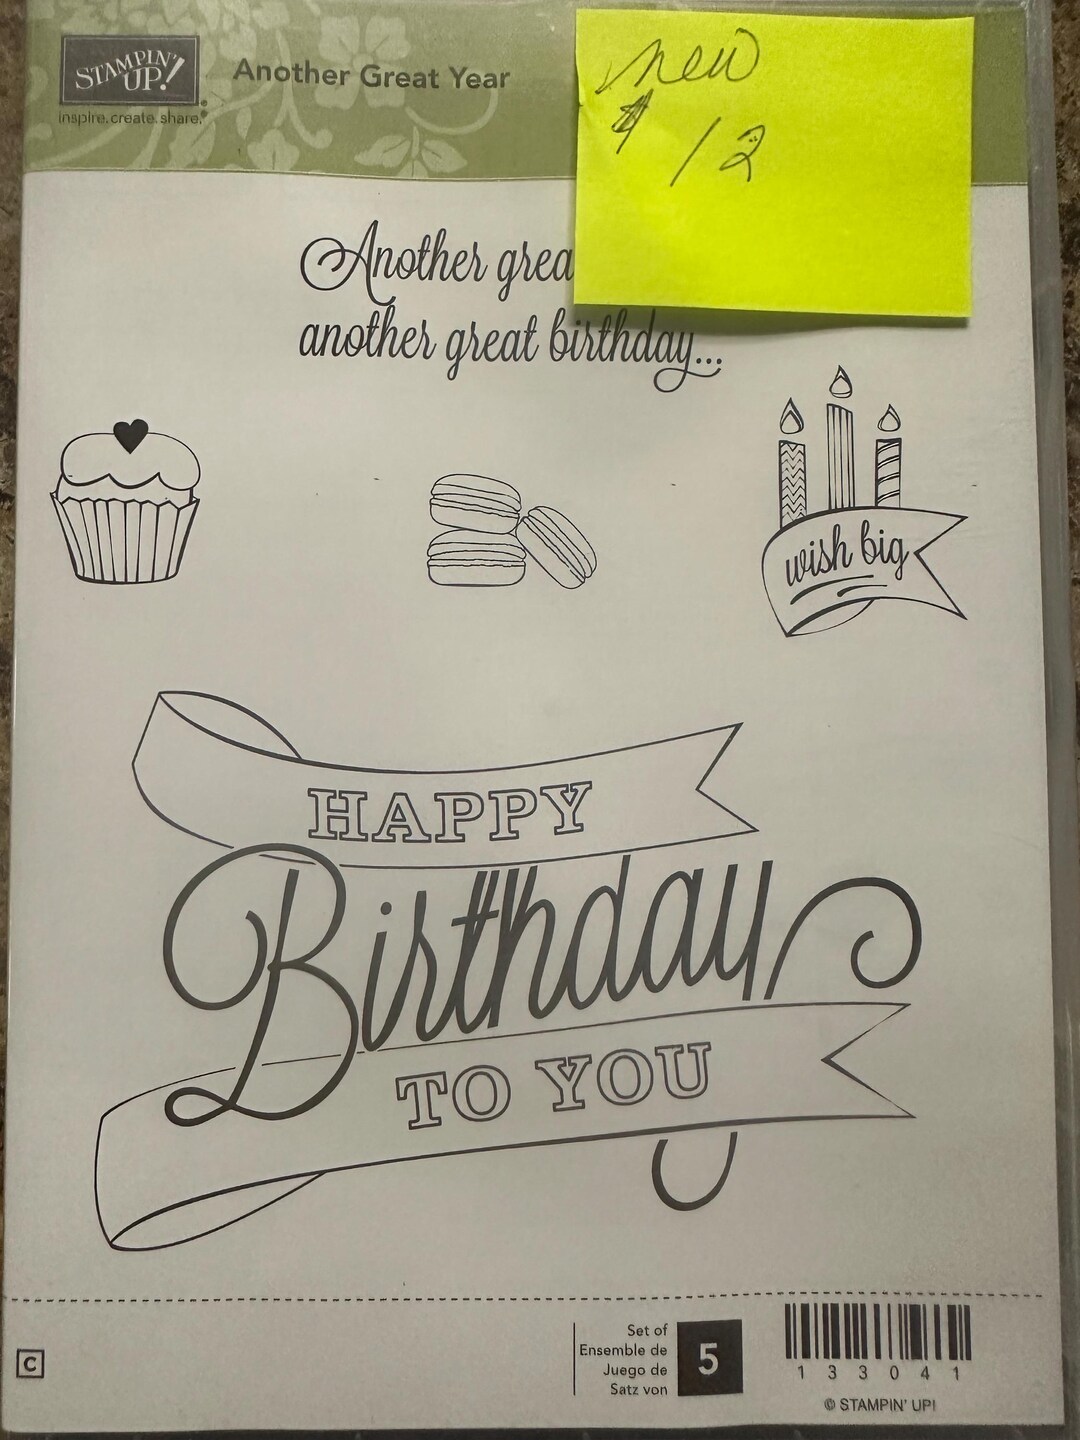 STAMPIN' UP!
inspire. create. share.
Another Great Year
new
$ 12
Another grea
another great birthday...
wish big
HAPPY
Birthday
TO YOU
C
Set of
Ensemble de
Juego de
Satz von
5
1 3 3 0 4 1
© STAMPIN' UP!